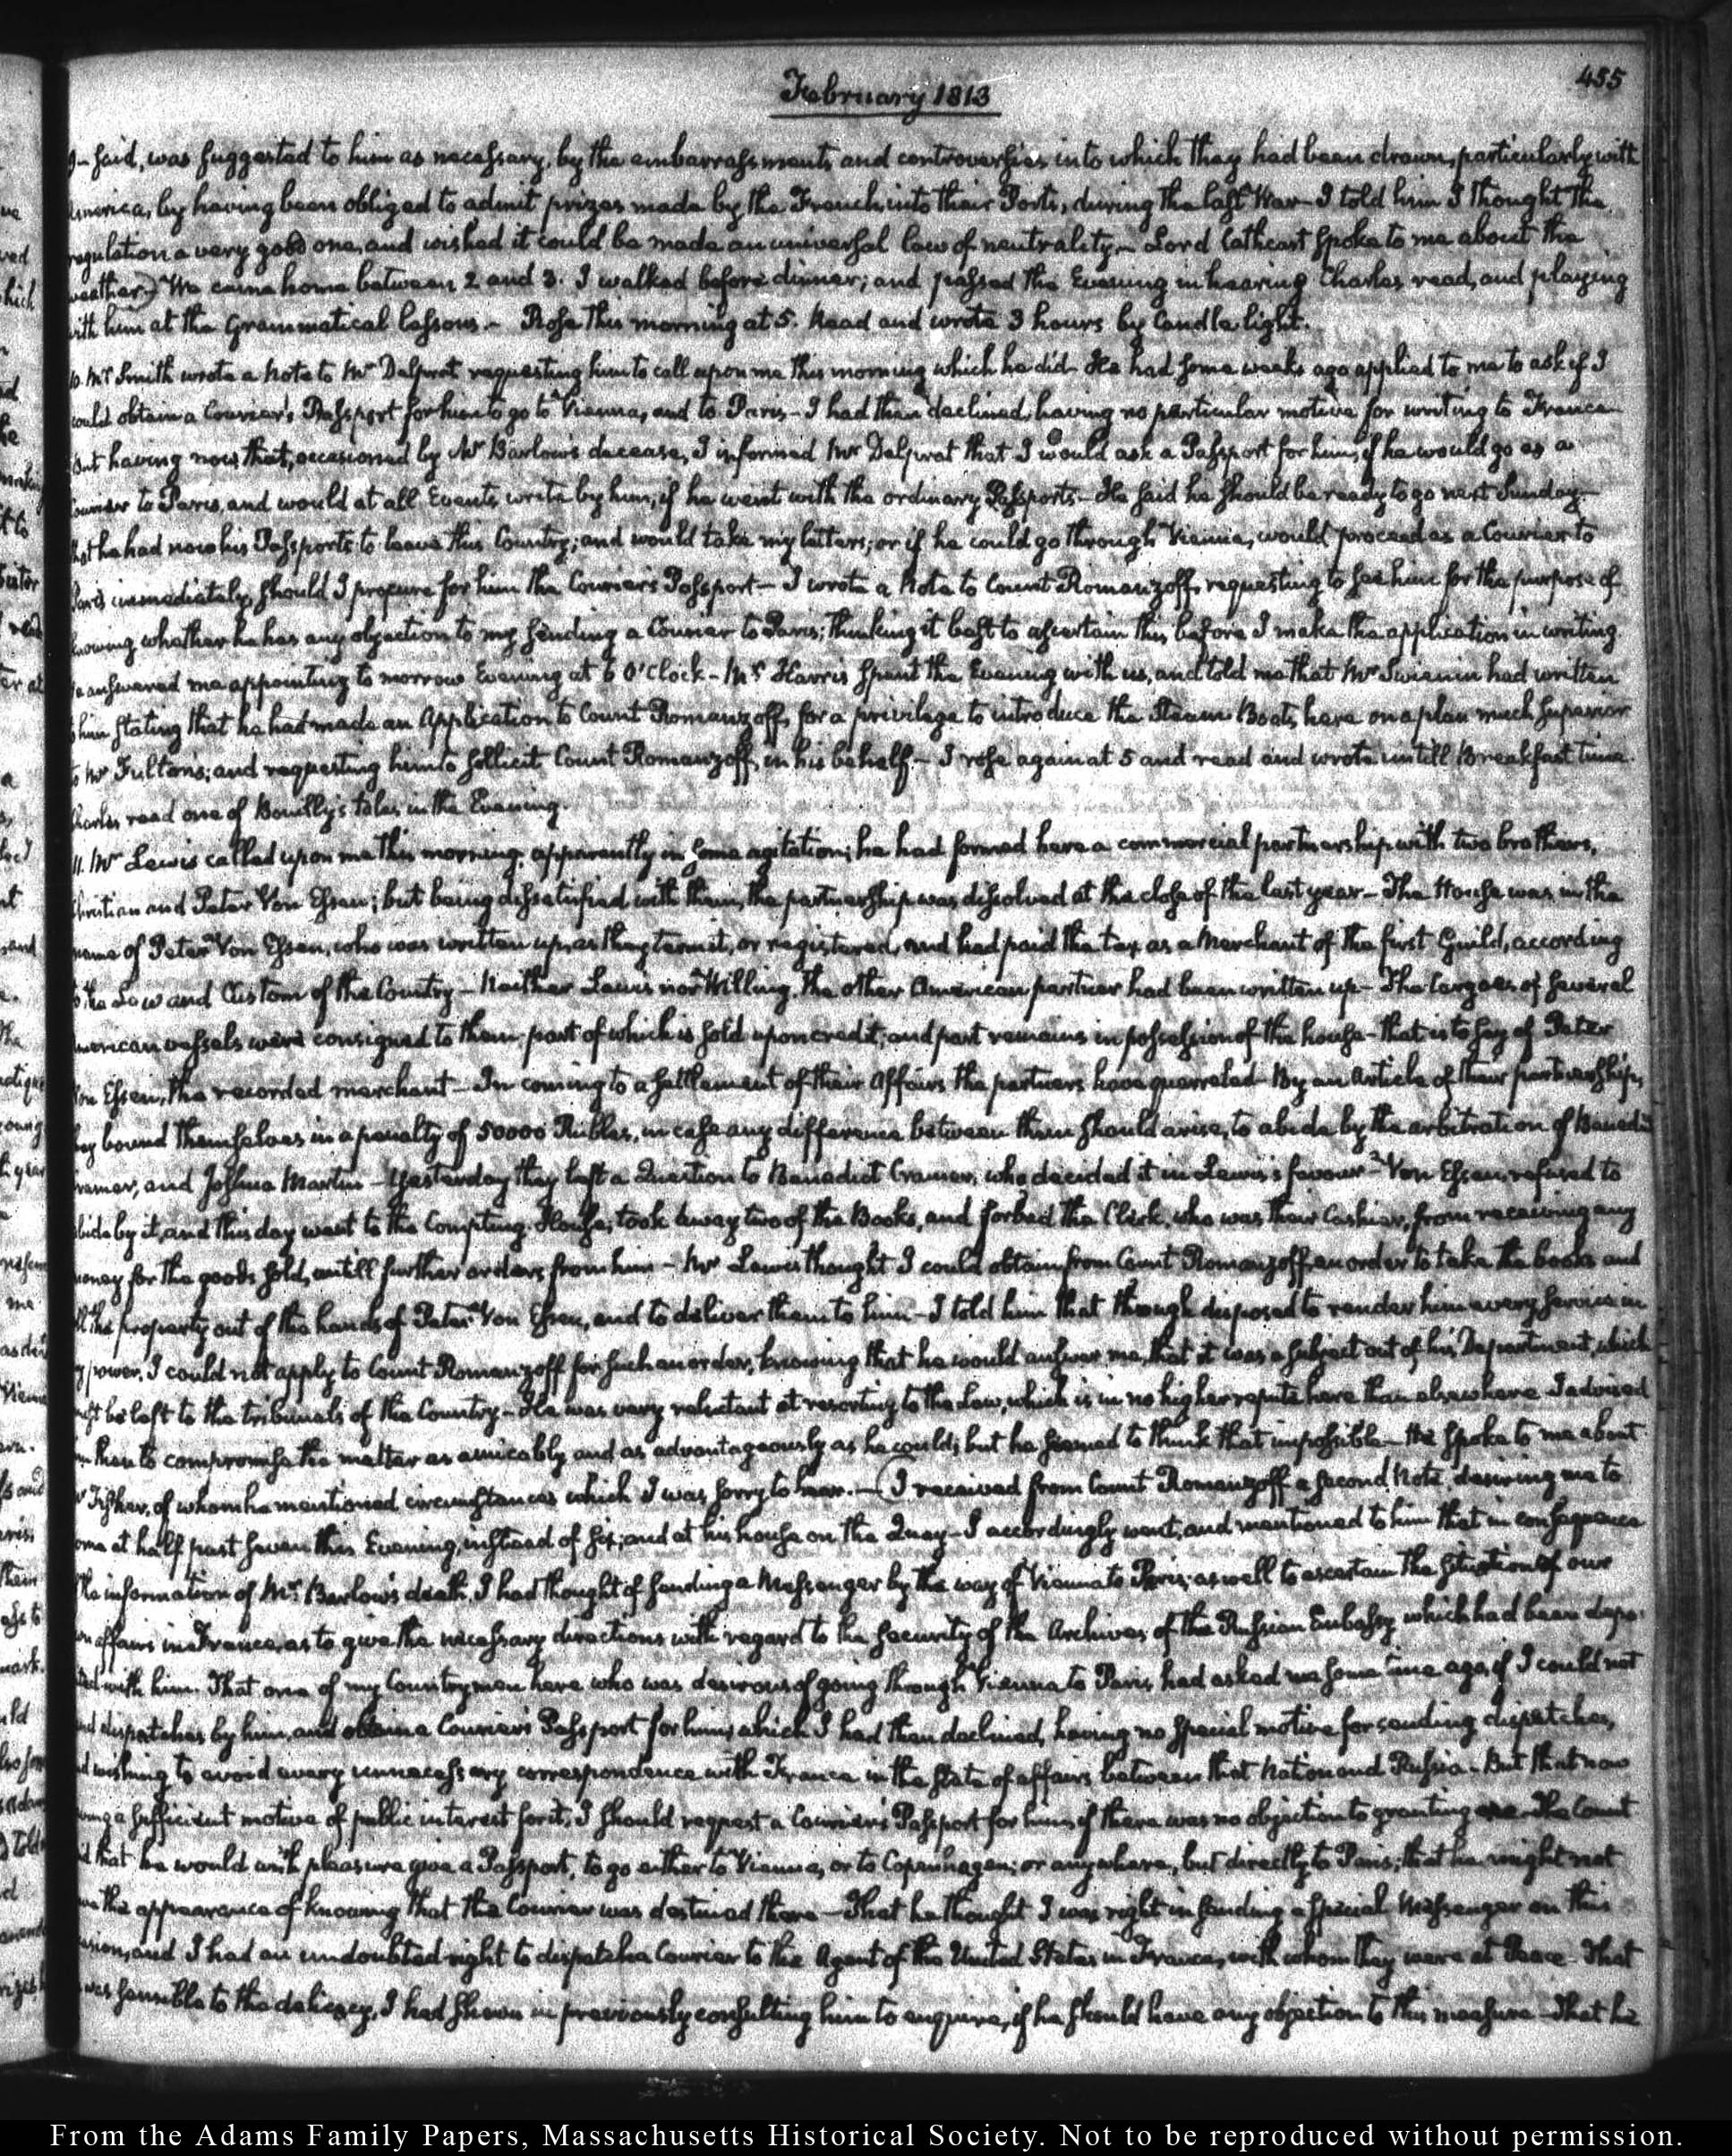 455
February 1813
said, was suggested to him as necessary, by the embarrassments and controversies into which they had been drawn, particularly with
America, by having been obliged to admit prizes made by the French into their Ports, during the last War— I told him I thought the
regulation a very good one, and wished it could be made an universal law of neutrality.— Lord Cathcart spoke to me about the
weather.) We came home between 2 and 3. I walked before dinner; and passed the Evening in hearing Charles read, and playing
with him at the Grammatical lessons.— Rose this morning at 5. Read and wrote 3 hours by Candle light.
10. Mr Smith wrote a Note to Mr Delprat requesting him to call upon me this morning which he did— He had some weeks ago applied to me to ask if I
could obtain a Courier's Passport for him to go to Vienna, and to Paris— I had then declined, having no particular motive for writing to France—
But having now that, occasioned by Mr Barlow's decease, I informed Mr Delprat that I would ask a Passport for him, if he would go as a
Courier to Paris, and would at all Events write by him, if he went with the ordinary Passports— He said he should be ready to go next Sunday—
that he had now his Passports to leave this Country; and would take my letters; or if he could go through Vienna, would proceed as a Courier to
Paris immediately, should I procure for him the Courier's Passport— I wrote a Note to Count Romanzoff, requesting to see him for the purpose of
knowing whether he has any objection to my sending a Courier to Paris; thinking it best to ascertain this, before I make the application in writing
he answered me appointing to morrow Evening at 6 O'Clock— Mr Harris spent the Evening with us, and told me that Mr Swinin had written
him stating that he had made an Application to Count Romanzoff, for a privilege to introduce the Steam Boats here on a plan much superior
to Mr Fulton's; and requesting him to sollicit Count Romanzoff, in his behalf.— I rose again at 5 and read and wrote untill Breakfast time.
Charles read one of Bouilly's tales in the Evening.
11. Mr Lewis called upon me this morning, apparently in some agitation; he had formed here a commercial partnership with two brothers,
Christian and Peter Von Essen; but being dissatisfied with them, the partnership was dissolved at the close of the last year— The House was in the
name of Peter Von Essen, who was written up, as they term it, or registered, and had paid the tax as a Merchant of the first Guild, according
to the Law and Custom of the Country— Neither Lewis nor Willing, the other American partner had been written up— The Cargoes of several
American vessels were consigned to them, part of which is sold upon credit, and part remains in possession of the house— that is to say of Peter
Von Essen, the recorded merchant— In coming to a settlement of their Affairs the partners have quarreled— By an Article of their partnership,
they bound themselves in a penalty of 50000 Rubles, in case any difference between them should arise, to abide by the arbitration of Benedict
Cramer, and Joshua Martin— Yesterday they left a Question to Benedict Cramer, who decided it in Lewis's favour— Von Essen, refused to
abide by it, and this day went to the Compting-House, took away two of the Books, and forbad the Clerk, who was their Cashier, from receiving any
money for the goods sold, untill further orders from him— Mr Lewis thought I could obtain from Count Romanzoff, an order to take the books and
all the property out of the hands of Peter Von Essen, and to deliver them to him— I told him that though disposed to render him every service in
my power, I could not apply to Count Romanzoff for such an order, knowing that he would answer me, that it was a subject out of his Department, which
must be left to the tribunals of the Country— He was very reluctant at resorting to the Law, which is in no higher repute here than elsewhere. I advised
him then to compromise the matter as amicably and as advantageously as he could; but he seemed to think that impossible— He spoke to me about
Mr Fisher, of whom he mentioned circumstances which I was sorry to hear.— (I received from Count Romanzoff a second Note, desiring me to
come at half past seven this Evening, instead of six; and at his house on the Quay— I accordingly went, and mentioned to him that in consequence
the information of Mr Barlow's death, I had thought of sending a Messenger by the way of Vienna to Paris; as well to ascertain the situation of our
own affairs in France, as to give the necessary directions with regard to the security of the Archives of the Russian Embassy which had been depo-
sited with him. That one of my Countrymen here who was desirous of going through Vienna to Paris, had asked me some time ago, if I could not
send dispatches by him, and obtain a Courier's Passport for him, which I had then declined, having no special motive for sending dispatches,
and wishing to avoid every unnecessary correspondence with France in the state of affairs between that Nation and Russia— But that now
having a sufficient motive of public interest for it, I should request a Courier's Passport for him, if there was no objection to granting one— The Count
said that he would with pleasure give a Passport, to go either to Vienna, or to Copenhagen; or anywhere, but directly to Paris; that he might not
have the appearance of knowing that the Courier was destined there— That he thought I was right in sending a special Messenger on this
occasion, and I had an undoubted right to dispatch a Courier to the Agent of the United States in France, with whom they were at Peace— That
he was sensible to the delicacy, I had shewn in previously consulting him to enquire, if he should have any objection to this measure— That he
From the Adams Family Papers, Massachusetts Historical Society. Not to be reproduced without permission.